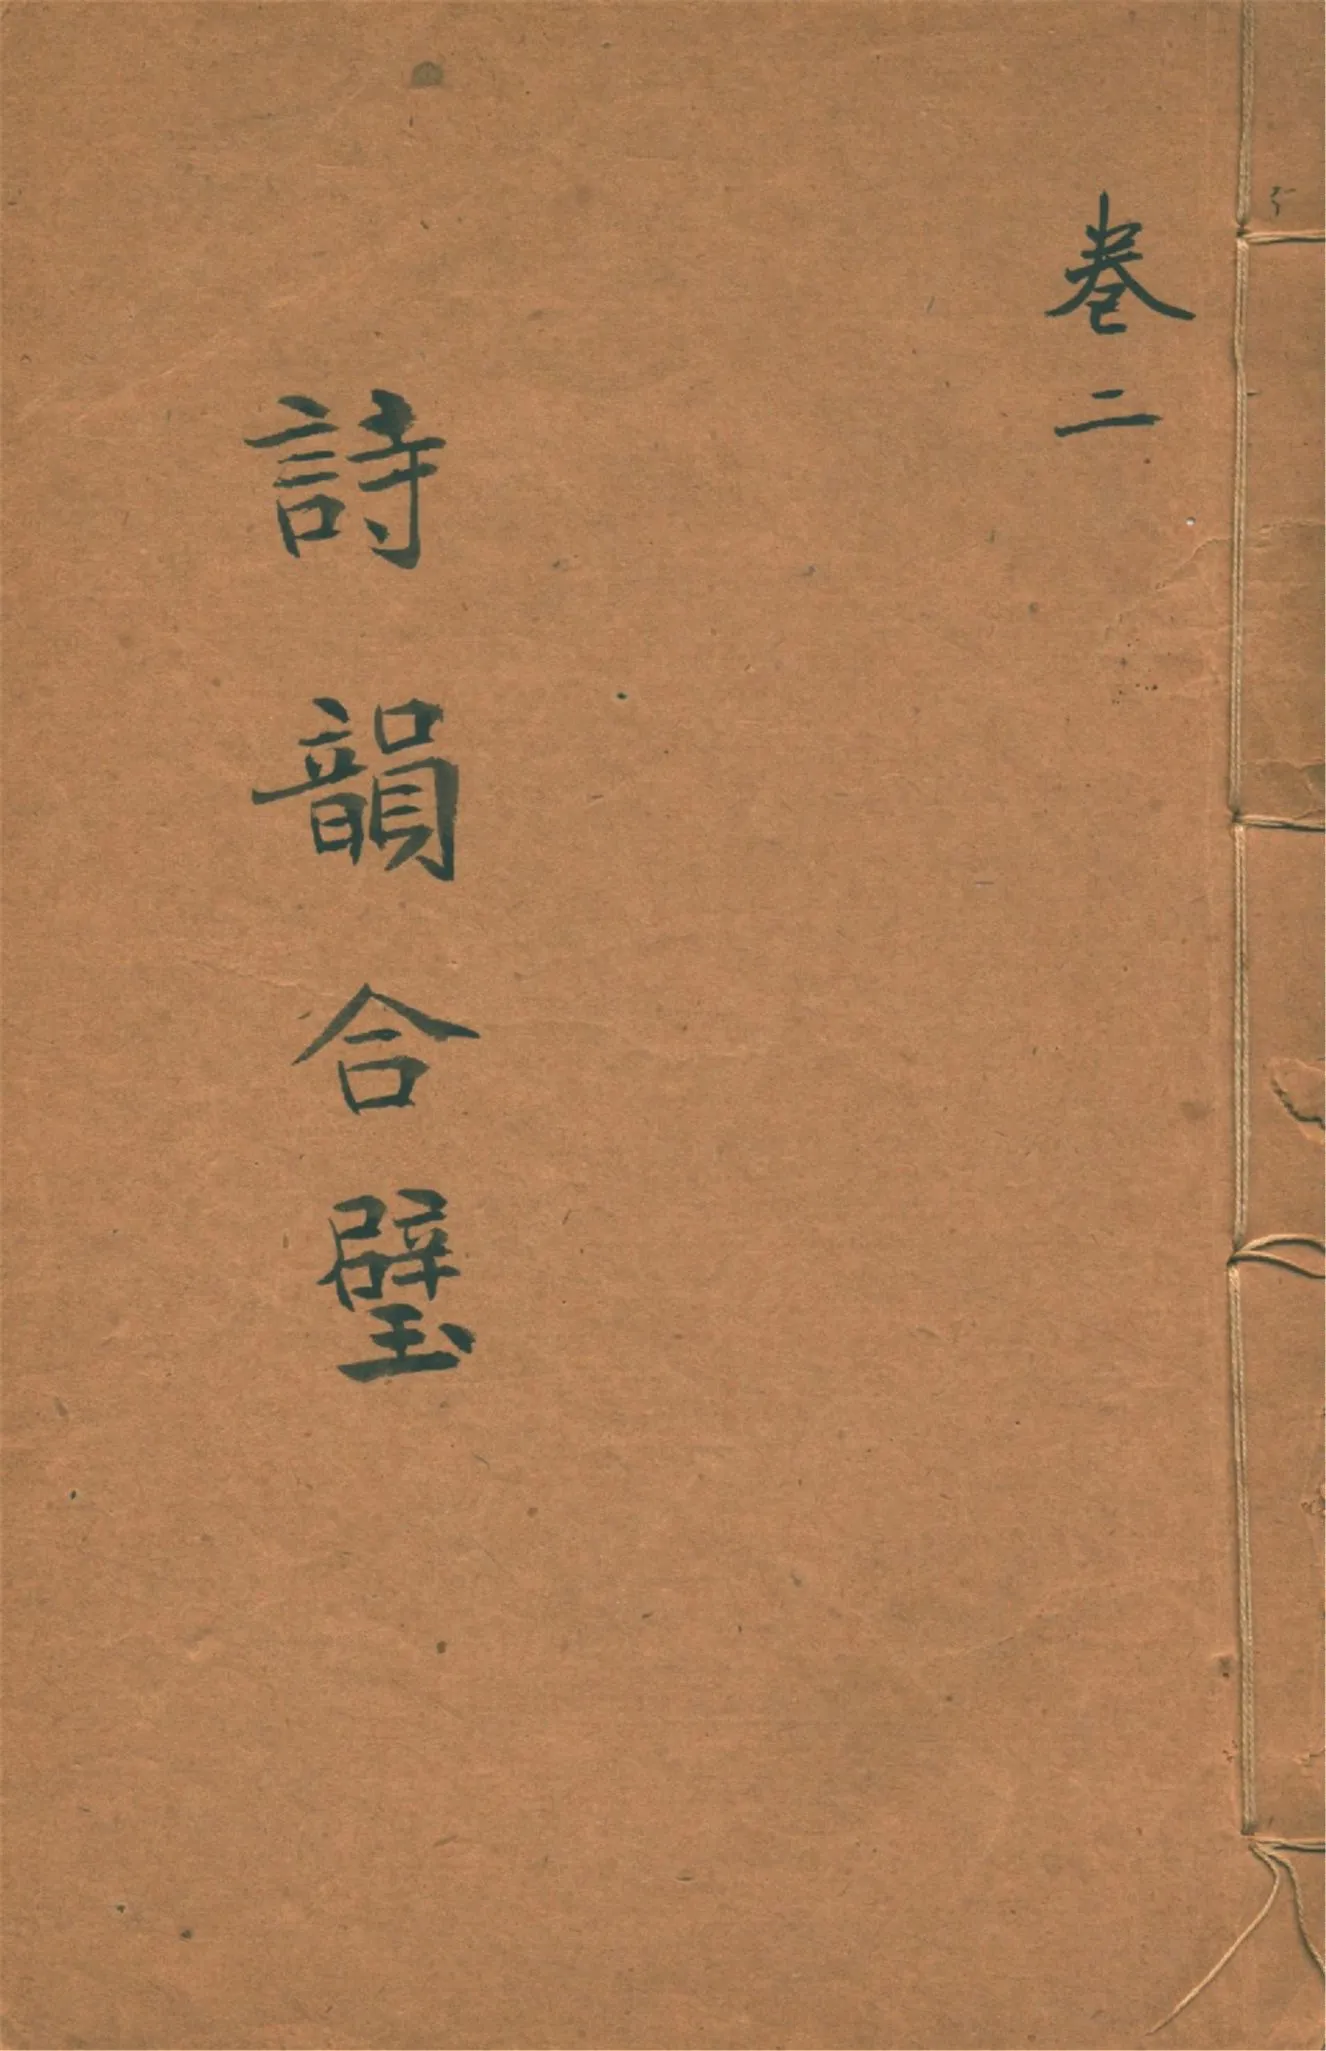 卷二
詩韻合璧